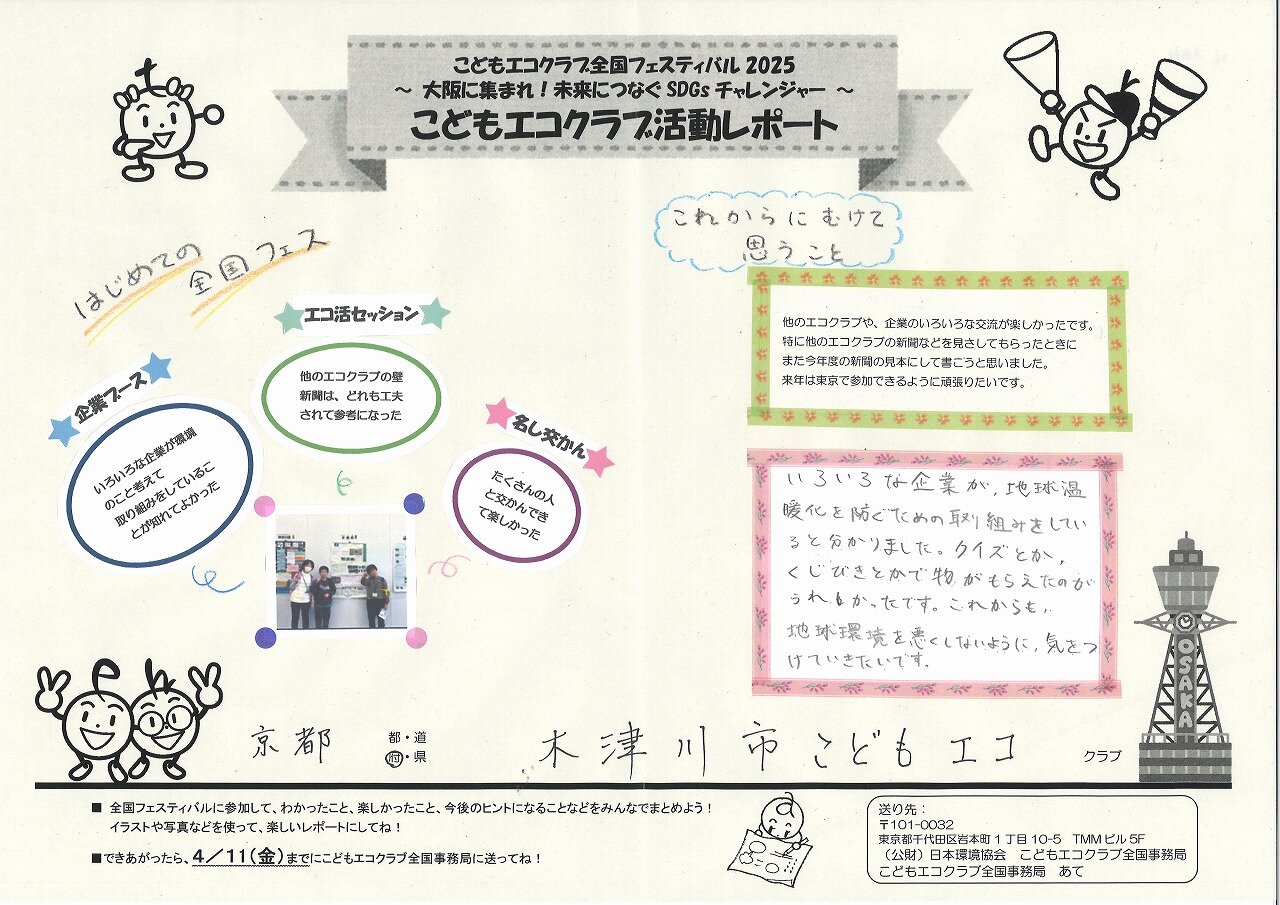 こどもエコクラブ全国フェスティバル 2025
～ 大阪に集まれ！未来につなぐ SDGs チャレンジャー ～
こどもエコクラブ活動レポート
はじめての
全国フェス
エコ活セッション
他のエコクラブの壁
新聞は、どれも工夫
されて参考になった
企業ブース
いろいろな企業が環境
のこと考えて
取り組みをしているこ
とが知れてよかった
名し交かん
たくさんの人
と交かんでき
て楽しかった
これからにむけて
思うこと
他のエコクラブや、企業のいろいろな交流が楽しかったです。
特に他のエコクラブの新聞などを見さしてもらったときに
また今年度の新聞の見本にして書こうと思いました。
来年は東京で参加できるように頑張りたいです。
いろいろな企業が、地球温
暖化を防ぐための取り組みをしてい
ると分かりました。クイズとか、
くじびきとかで物がもらえたのが
うれしかったです。これからも、
地球環境を悪くしないように、気をつ
けていきたいです。
OSAKA
京都 都・道
府・県
木津川市こどもエコ クラブ
■ 全国フェスティバルに参加して、わかったこと、楽しかったこと、今後のヒントになることなどをみんなでまとめよう！
イラストや写真などを使って、楽しいレポートにしてね！
■できあがったら、4／11(金)までにこどもエコクラブ全国事務局に送ってね！
送り先：
〒101-0032
東京都千代田区岩本町 1 丁目 10-5 TMM ビル 5F
（公財）日本環境協会 こどもエコクラブ全国事務局
こどもエコクラブ全国事務局 あて